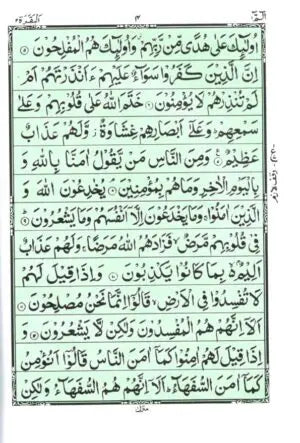 الٓمّٓ ۴ البقرة
اُولٰٓئِكَ عَلٰى هُدًى مِّنْ رَّبِّهِمْ وَاُولٰٓئِكَ هُمُ الْمُفْلِحُوْنَ ۝۵
اِنَّ الَّذِيْنَ كَفَرُوْا سَوَآءٌ عَلَيْهِمْ ءَاَنْذَرْتَهُمْ اَمْ
لَمْ تُنْذِرْهُمْ لَا يُؤْمِنُوْنَ ۝۶ خَتَمَ اللّٰهُ عَلٰى قُلُوْبِهِمْ وَعَلٰى
سَمْعِهِمْ ؕ وَعَلٰٓى اَبْصَارِهِمْ غِشَاوَةٌ ؗ وَّلَهُمْ عَذَابٌ
عَظِيْمٌ ۝۷ وَمِنَ النَّاسِ مَنْ يَّقُوْلُ اٰمَنَّا بِاللّٰهِ وَ
بِالْيَوْمِ الْاٰخِرِ وَمَا هُمْ بِمُؤْمِنِيْنَ ۝۸ يُخٰدِعُوْنَ اللّٰهَ وَ
الَّذِيْنَ اٰمَنُوْا ۚ وَمَا يَخْدَعُوْنَ اِلَّآ اَنْفُسَهُمْ وَمَا يَشْعُرُوْنَ ۝۹
فِيْ قُلُوْبِهِمْ مَّرَضٌ ۙ فَزَادَهُمُ اللّٰهُ مَرَضًا ۚ وَلَهُمْ عَذَابٌ
اَلِيْمٌۢ ۙ۬ بِمَا كَانُوْا يَكْذِبُوْنَ ۝۱۰ وَاِذَا قِيْلَ لَهُمْ
لَا تُفْسِدُوْا فِي الْاَرْضِ ۙ قَالُوْٓا اِنَّمَا نَحْنُ مُصْلِحُوْنَ ۝۱۱
اَلَآ اِنَّهُمْ هُمُ الْمُفْسِدُوْنَ وَلٰكِنْ لَّا يَشْعُرُوْنَ ۝۱۲ وَ
اِذَا قِيْلَ لَهُمْ اٰمِنُوْا كَمَآ اٰمَنَ النَّاسُ قَالُوْٓا اَنُؤْمِنُ
كَمَآ اٰمَنَ السُّفَهَآءُ ؕ اَلَآ اِنَّهُمْ هُمُ السُّفَهَآءُ وَلٰكِنْ
منزل